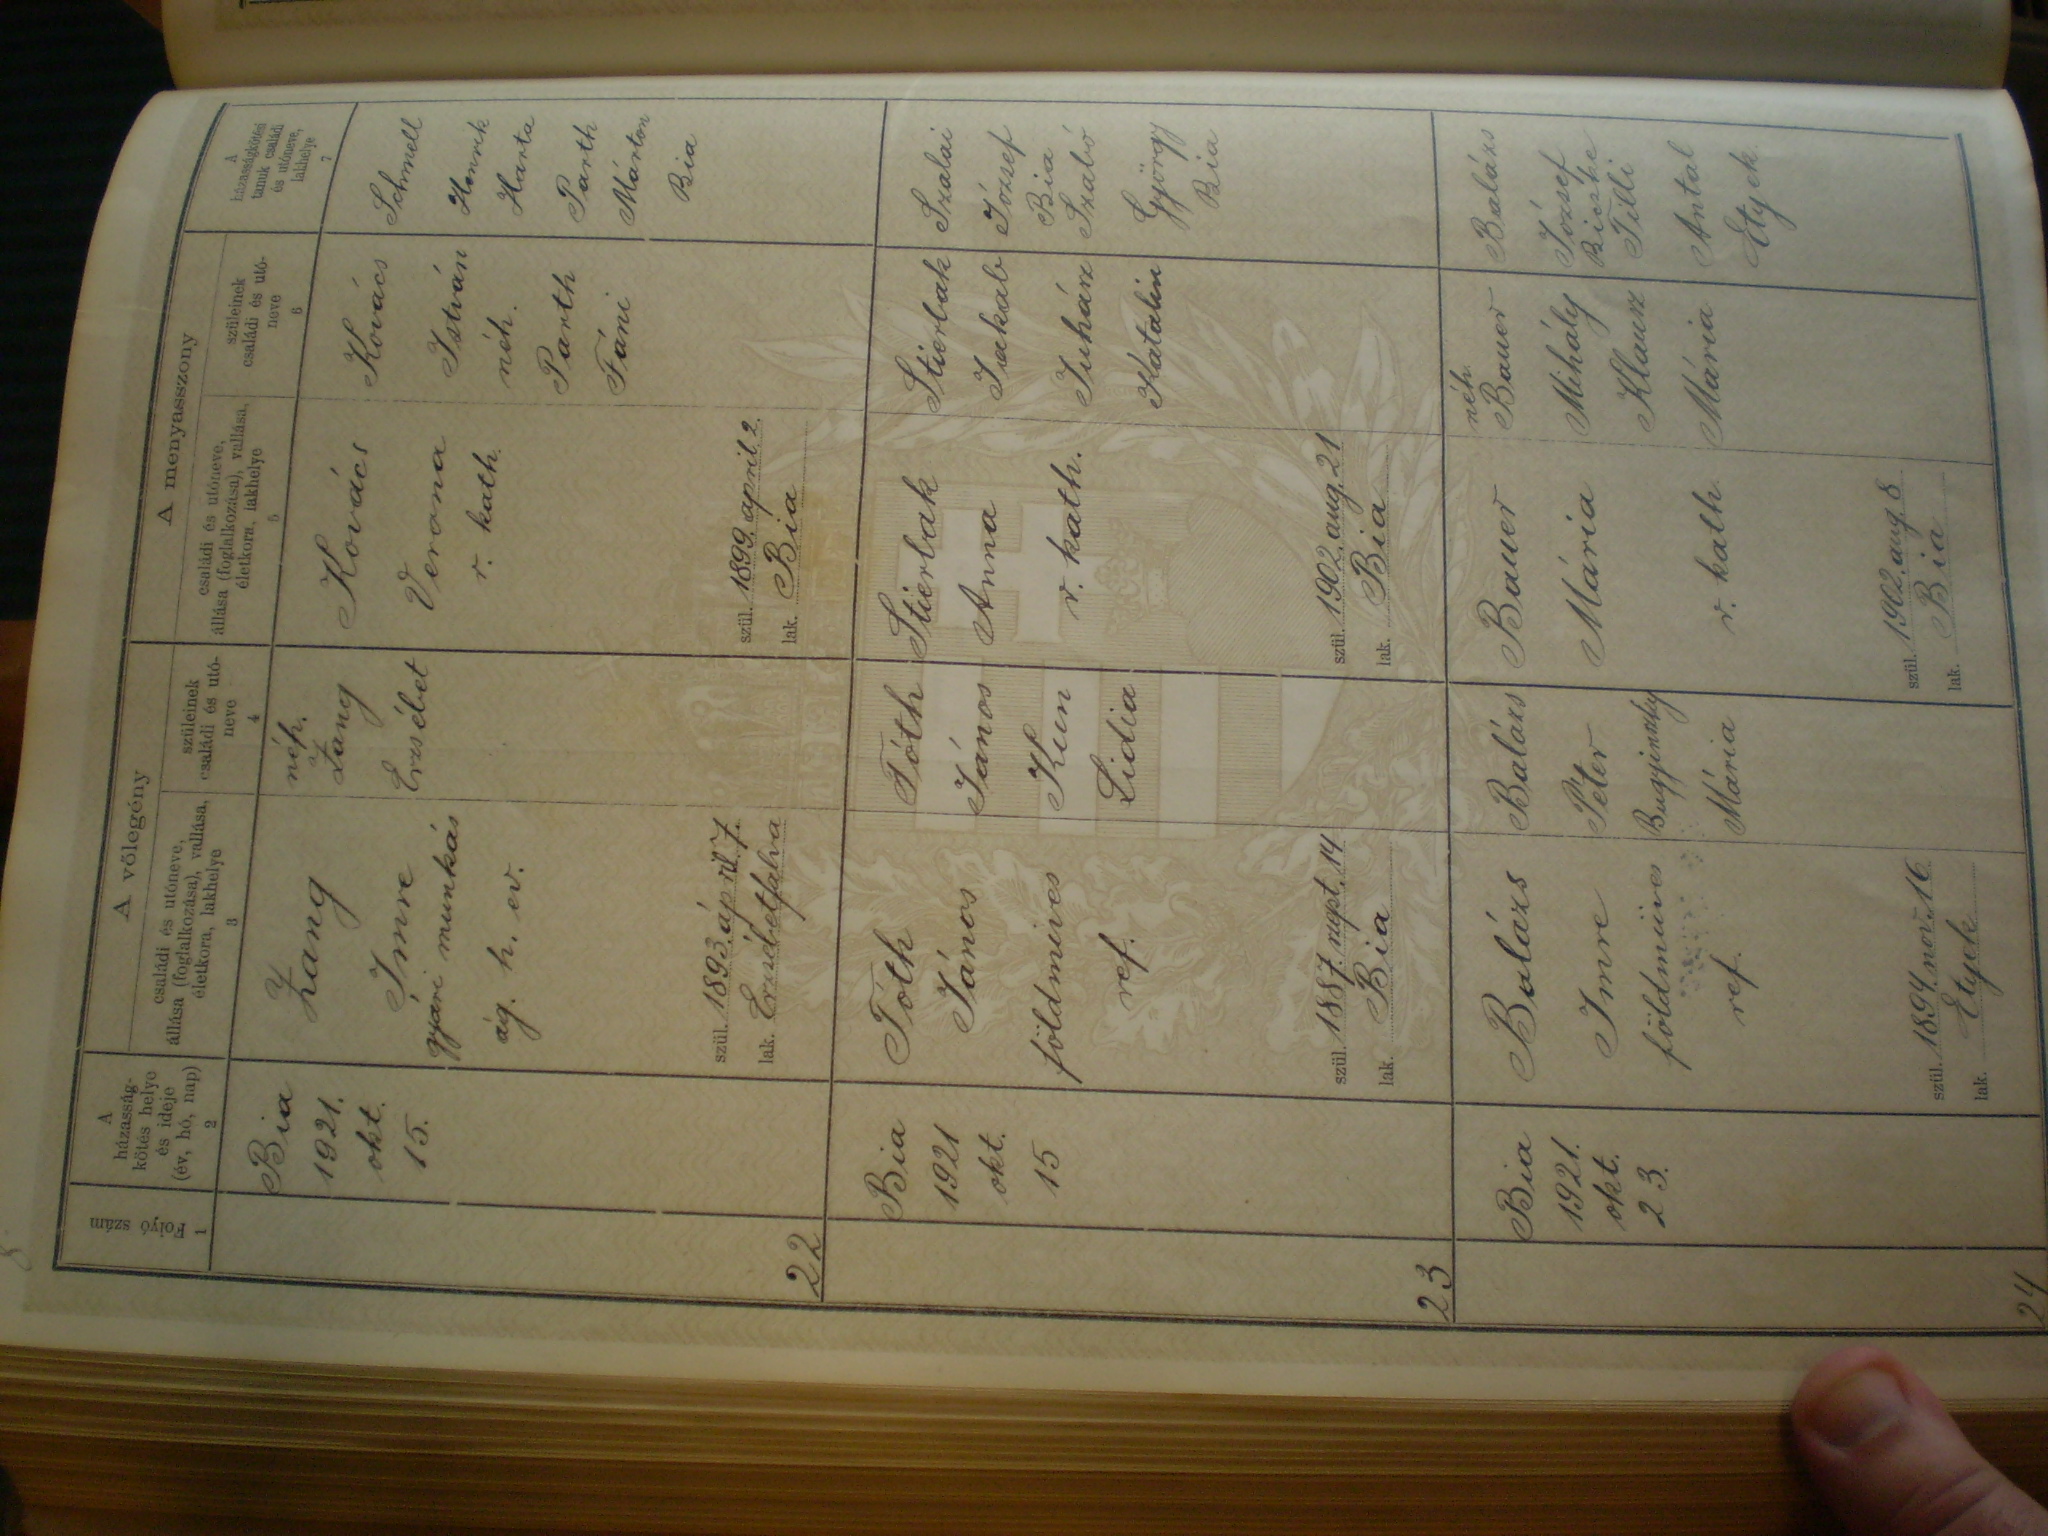 1
Folyó szám
2
A
házasság-
kötés helye
és ideje
(év, hó, nap)
A vőlegény
3
családi és utóneve,
állása (foglalkozása), vallása,
életkora, lakhelye
4
szüleinek
családi és utó-
neve
A menyasszony
5
családi és utóneve,
állása (foglalkozása), vallása,
életkora, lakhelye
6
szüleinek
családi és utó-
neve
7
A
házasságkötési
tanuk családi
és utóneve,
lakhelye
22
Bia
1921.
okt.
15.
Zang
Imre
gyári munkás
ág. h. ev.
szül. 1893. április 7.
lak. Erzsébetfalva
néh.
Zang
Erzsébet
Kovács
Verona
r. kath.
szül. 1899. április 2
lak. Bia
Kovács
István
néh.
Parth
Fáni
Schmell
Henrik
Harta
Parth
Márton
Bia
23
Bia
1921
okt.
15
Tóth
János
földmíves
ref.
szül. 1887. szept. 14
lak. Bia
Tóth
János
Kun
Lidia
Stierbak
Anna
r. kath.
szül. 1902. aug. 21
lak. Bia
Stierbak
Jakab
Juhász
Katalin
Szalai
József
Bia
Szabó
György
Bia
24
Bia
1921.
okt.
23.
Balázs
Imre
földmüves
ref.
szül. 1894. nov. 16
lak. Etyek
Balázs
Péter
Mária
Bauer
Mária
r. kath.
szül. 1902. aug. 8
lak. Bia
néh.
Bauer
Mihály
Klausz
Mária
Balázs
József
Bicske
Tilli
Antal
Etyek